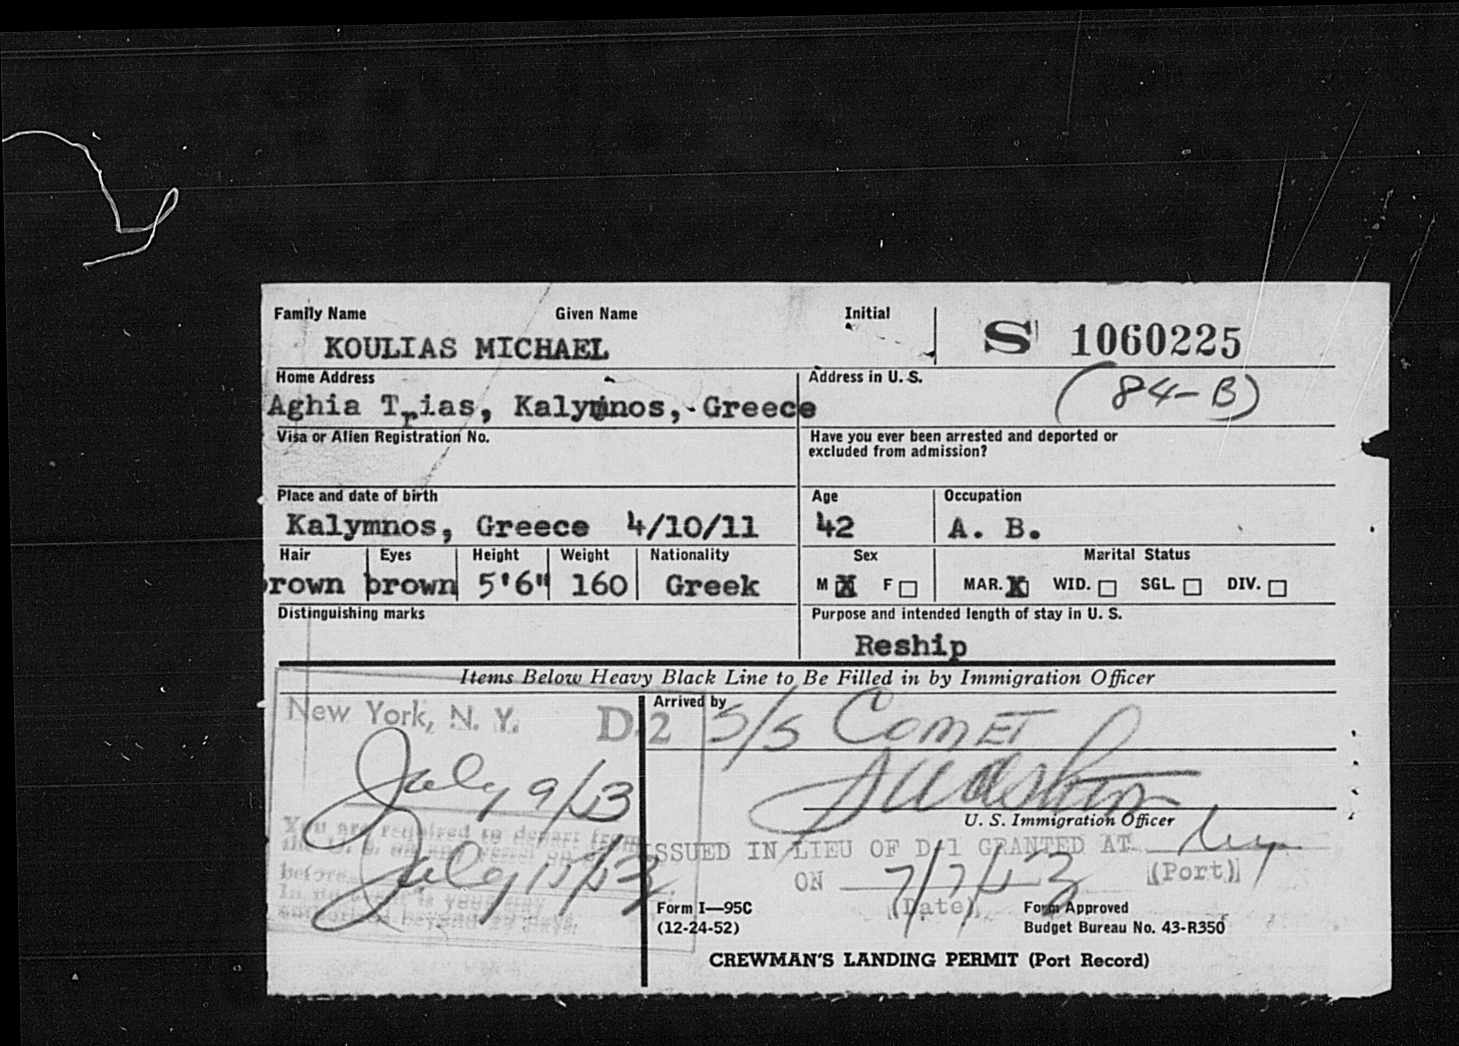 Family Name Given Name Initial
KOULIAS MICHAEL S 1060225
Home Address Address in U. S.
Aghia Trias, Kalymnos, Greece (84-B)
Visa or Alien Registration No. Have you ever been arrested and deported or
excluded from admission?
Place and date of birth Age Occupation
Kalymnos, Greece 4/10/11 42 A. B.
Hair Eyes Height Weight Nationality Sex Marital Status
rown brown 5'6" 160 Greek M X F MAR. X WID. SGL. DIV.
Distinguishing marks Purpose and intended length of stay in U. S.
Reship
Items Below Heavy Black Line to Be Filled in by Immigration Officer
New York, N. Y. D.2 Arrived by S/S COMET
July 9/53
U. S. Immigration Officer
You are required to depart from
before
July
ISSUED IN LIEU OF D-1 GRANTED AT
ON 7/7/53 (Port)
(Date)
Form I—95C Form Approved
(12-24-52) Budget Bureau No. 43-R350
CREWMAN'S LANDING PERMIT (Port Record)